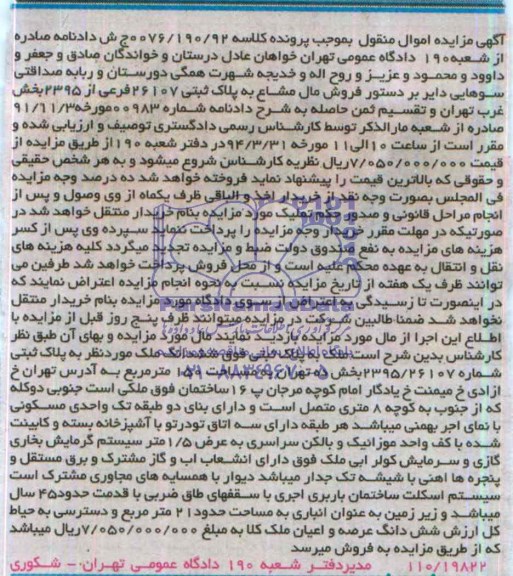 آگهی مزایده اموال منقول بموجب پرونده کلاسه ۰۰۷۶/۱۹۰/۹۲ج ش دادنامه صادره
از شعبه۱۹۰ دادگاه عمومی تهران خواهان عادل درستان و خواندگان صادق و جعفر و
داوود و محمود و عزیز و روح اله و خدیجه شهرت همگی دورستان و ربابه صداقتی
سوهایی دایر بر دستور فروش مال مشاع به پلاک ثبتی ۲۶۱۰۷فرعی از ۲۳۹۵بخش
غرب تهران و تقسیم ثمن حاصله به شرح دادنامه شماره ۰۰۹۸۳مورخه۹۱/۱۱/۳
صادره از شعبه مارالذکر توسط کارشناس رسمی دادگستری توصیف و ارزیابی شده و
مقرر است از ساعت ۱۰الی۱۱ مورخه ۹۴/۳/۳۱در دفتر شعبه ۱۹۰از طریق مزایده از
قیمت ۷/۰۵۰/۰۰۰/۰۰۰ریال نظریه کارشناس شروع میشود و به هر شخص حقیقی
و حقوقی که بالاترین قیمت را پیشنهاد نماید فروخته خواهد شد ده درصد وجه مزایده
فی المجلس بصورت وجه نقد از خریدار اخذ و الباقی ظرف یکماه از وی وصول و پس از
انجام مراحل قانونی و صدور حکم تملیک مورد مزایده بنام خریدار منتقل خواهد شد در
صورتیکه در مهلت مقرر خریدار وجه مزایده را پرداخت ننماید سپرده وی پس از کسر
هزینه های مزایده به نفع صندوق دولت ضبط و مزایده تجدید میگردد کلیه هزینه های
نقل و انتقال به عهده محکم علیه است و از محل فروش پرداخت خواهد شد طرفین می
توانند ظرف یک هفته از تاریخ مزایده نسبت به نحوه انجام مزایده اعتراض نمایند که
در اینصورت تا رسیدگی به اعتراض از سوی دادگاه مورد مزایده بنام خریدار منتقل
نخواهد شد ضمنا طالبین شرکت در مزایده میتوانند ظرف پنج روز قبل از مزایده با
اطلاع این اجرا از مال مورد مزایده بازدید نمایند مال مورد مزایده و بهای آن طبق نظر
کارشناس بدین شرح است ملک ملک موردنظر به پلاک ثبتی
شماره ۲۳۹۵/۲۶۱۰۷بخش ده تهران به مساحت ۱۵۹ مترمربع به آدرس تهران خ
ازادی خ میمنت خ یادگار امام کوچه مرجان پ ۱۶ساختمان فوق ملکی است جنوبی دوکله
که از جنوب به کوچه ۸ متری متصل است و دارای بنای دو طبقه تک واحدی مسکونی
با نمای اجر بهمنی میباشد هر طبقه دارای سه اتاق تودرتو با آشپزخانه بسته و کابینت
شده با کف واحد موزائیک و بالکن سراسری به عرض ۱/۵متر سیستم گرمایش بخاری
گازی و سرمایش کولر ابی ملک فوق دارای انشعاب اب و گاز مشترک و برق مستقل و
پنجره ها اهنی با شیشه تک جدار میباشد دیوار با همسایه های مجاوری مشترک است
سیستم اسکلت ساختمان باربری اجری با سقفهای طاق ضربی با قدمت حدود۴۵ سال
میباشد و زیر زمین به عنوان انباری به مساحت حدود۲۱ متر مربع و دسترسی به حیاط
کل ارزش شش دانگ عرصه و اعیان ملک کلا به مبلغ ۷/۰۵۰/۰۰۰/۰۰۰ریال میباشد
که از طریق مزایده به فروش میرسد
۱۱۰/۱۹۸۲۲ مدیردفتر شعبه ۱۹۰ دادگاه عمومی تهران – شکوری
ParsNamadData